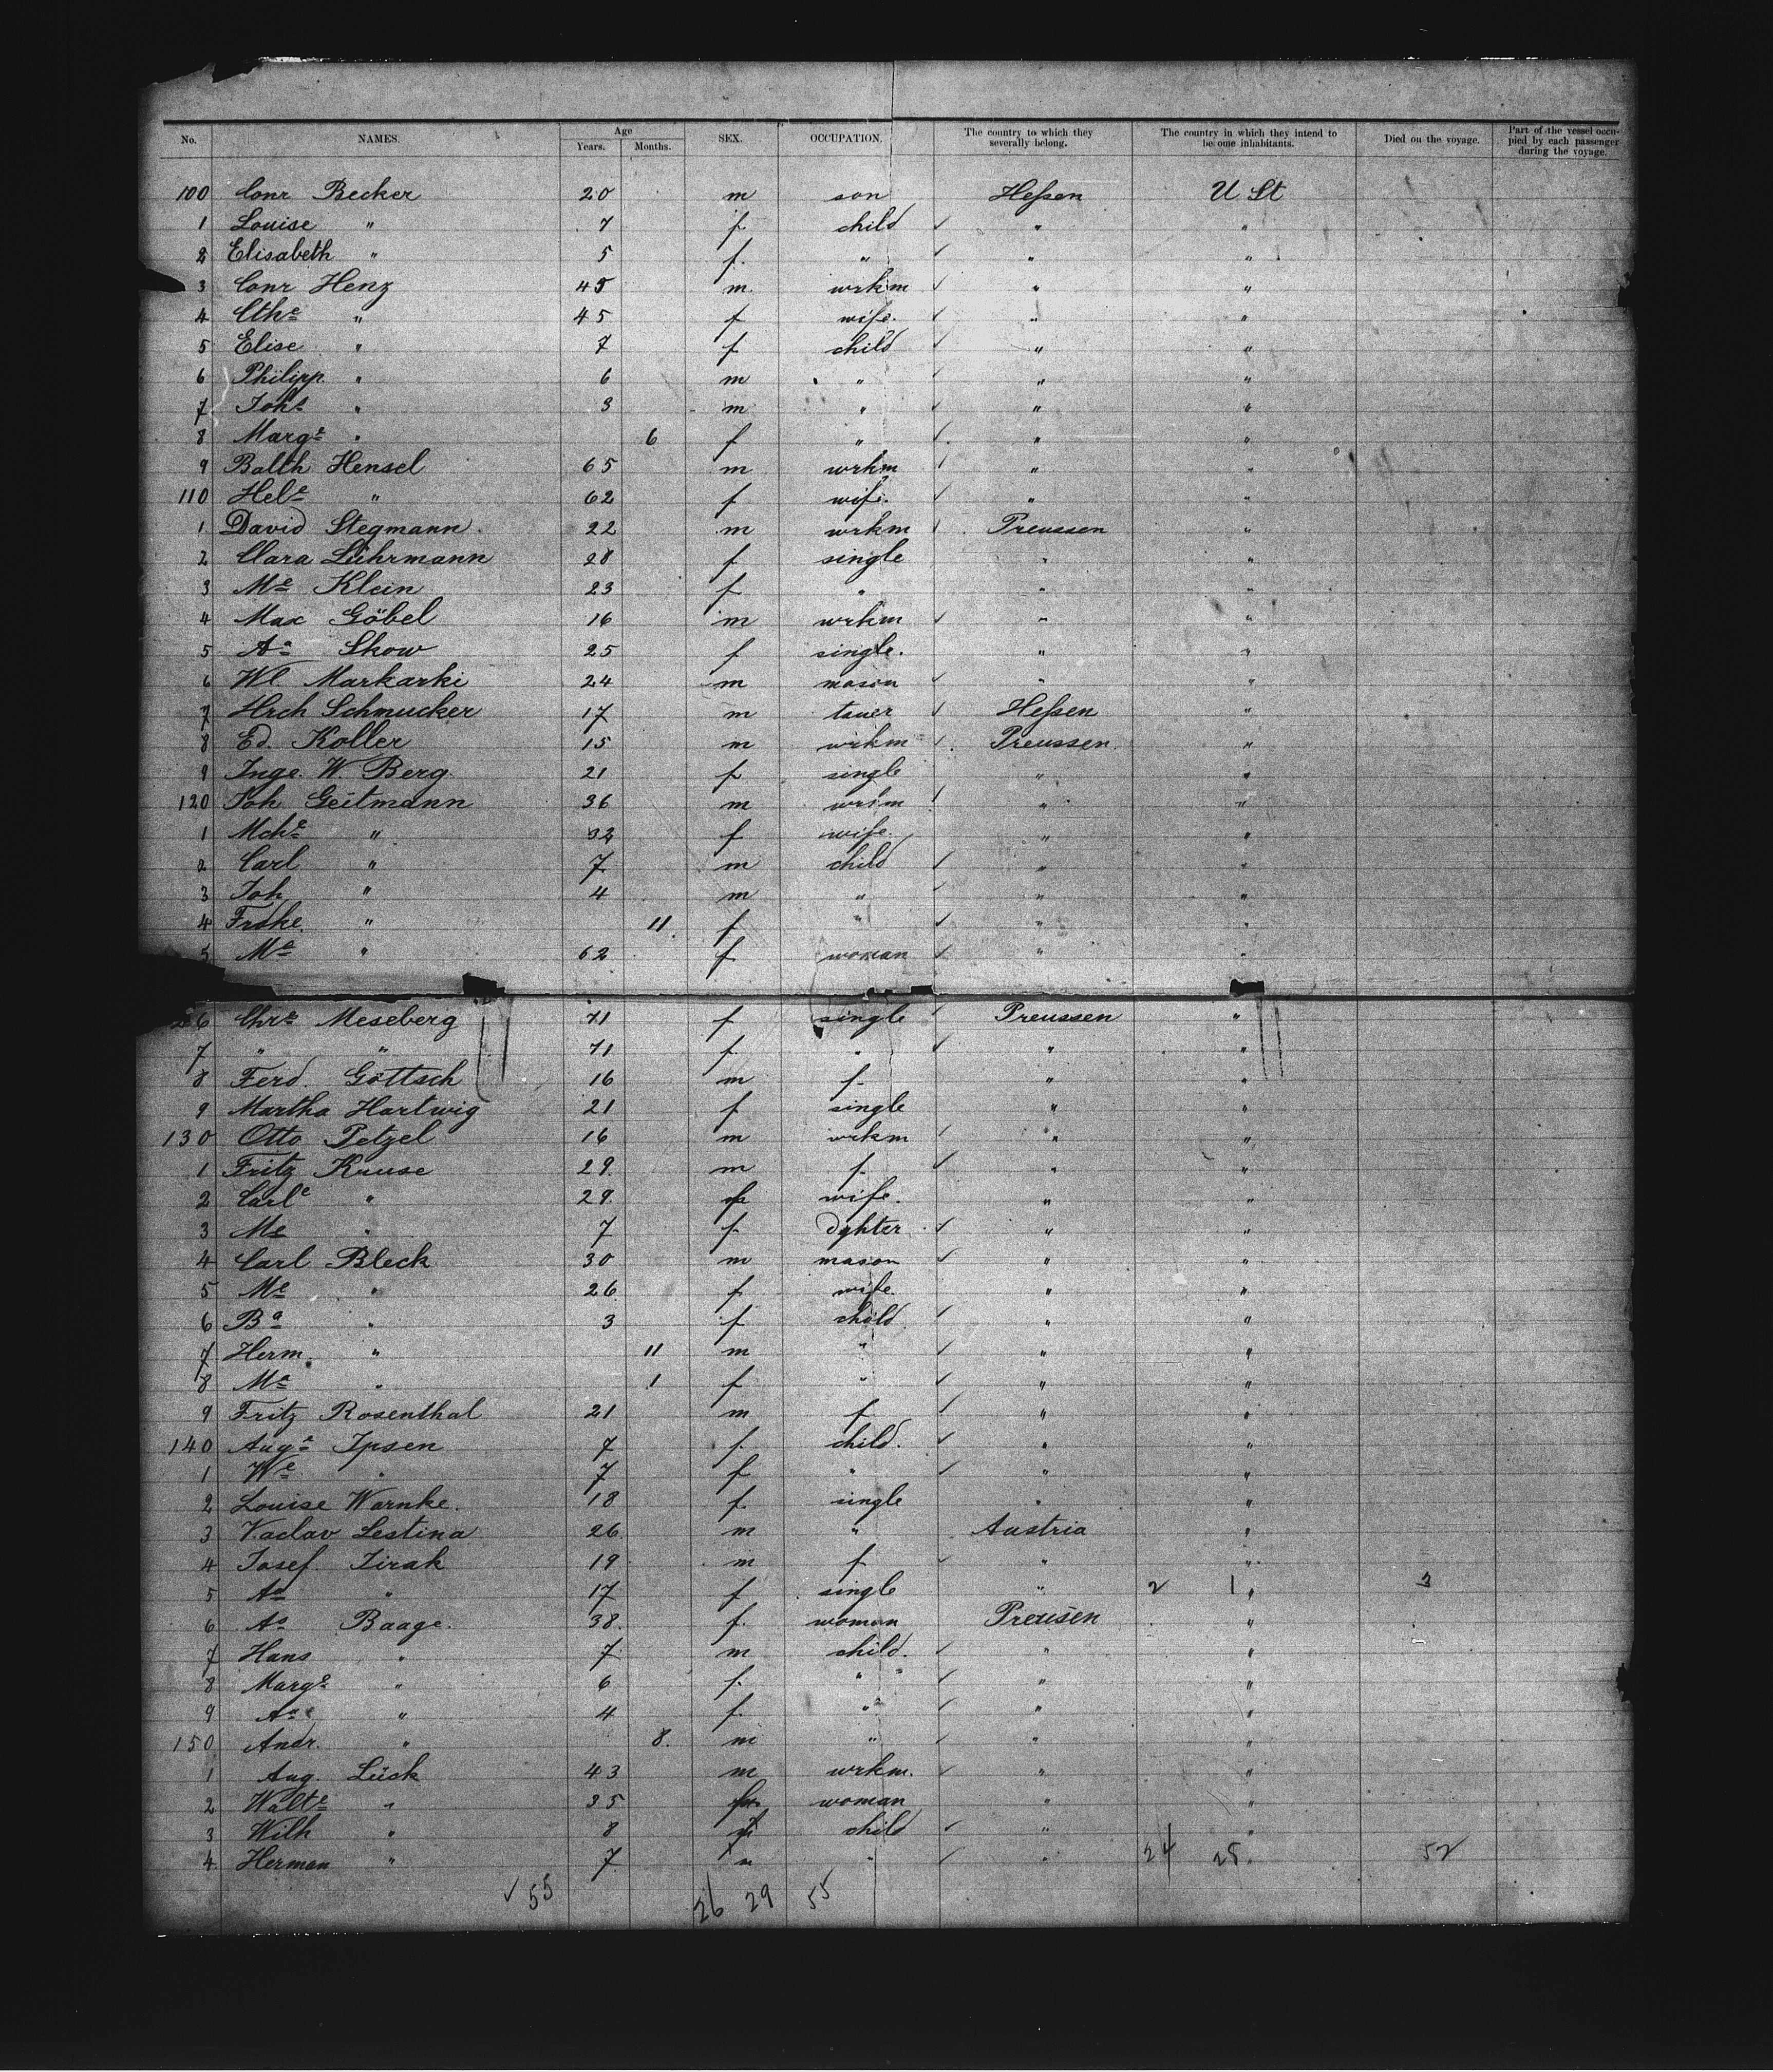 No. NAMES. Age Years. Months. SEX. OCCUPATION. The country to which they severally belong. The country in which they intend to become inhabitants. Died on the voyage. Part of the vessel occupied by each passenger during the voyage.
100 Conr Becker 20 m son Hessen U St
1 Louise " 7 f child " "
2 Elisabeth " 5 f. " " "
3 Conr Henz 45 m. wrkm " "
4 Cthe " 45 f wife. " "
5 Elise " 7 f child " "
6 Philipp " 6 m " " "
7 Johs " 3 m " " "
8 Marge " 6 f " " "
9 Balth Hensel 65 m wrkm " "
110 Hele " 62 f wife. " "
1 David Stegmann. 22 m wrkm Preussen "
2 Clara Lührmann 28 f single " "
3 Me Klein 23 f " " "
4 Max Göbel 16 m wrkm " "
5 Aa Skow 25 f single. " "
6 Wl. Markarki 24 m mason " "
7 Hrch Schmucker 17 m Hessen "
8 Ed. Koller 15 m wrkm Preussen. "
9 Inge. W. Berg. 21 f single " "
120 Joh Geitmann 36 m wrkm " "
1 Mche " 32 f wife. " "
2 Carl " 7 m child " "
3 Joh " 4 m " " "
4 Frdke. " 11. f " " "
5 Me " 62 f woman " "
26 Chre Meseberg 71 f single Preussen "
7 " " 71 f. " " "
8 Ferd. Göttsch 16 m f. " "
9 Martha Hartwig 21 f single " "
130 Otto Petzel 16 m wrkm " "
1 Fritz Kruse 29. m f. " "
2 Carle " 29. f wife. " "
3 Me " 7 f. dghter " "
4 Carl Bleck 30 m mason " "
5 Me " 26 f wife. " "
6 Ba " 3 f child " "
7 Herm. " 11 m " " "
8 Me " 1 f " " "
9 Fritz Rosenthal 21 m f " "
140 Auge Ipsen 7 f. child. " "
1 We " 7 f " " "
2 Louise Warnke. 18 f. single " "
3 Vaclav Lestina 26. m " Austria "
4 Josef Zirak 19 m f " "
5 Aa " 17 f single " 2 1 " 3
6 Aa Baage. 38. f. woman Preusen "
7 Hans " 7 m child. " "
8 Marge " 6 f. " " "
9 Aa " 4 f. " " "
150 Andr. " 8. m " " "
1 Aug. Lück 43 m wrkm. " "
2 Walte " 35 woman " "
3 Wilh " 8 child " "
4 Herman " 7 m " " 24 28. 52
55 26 29 55